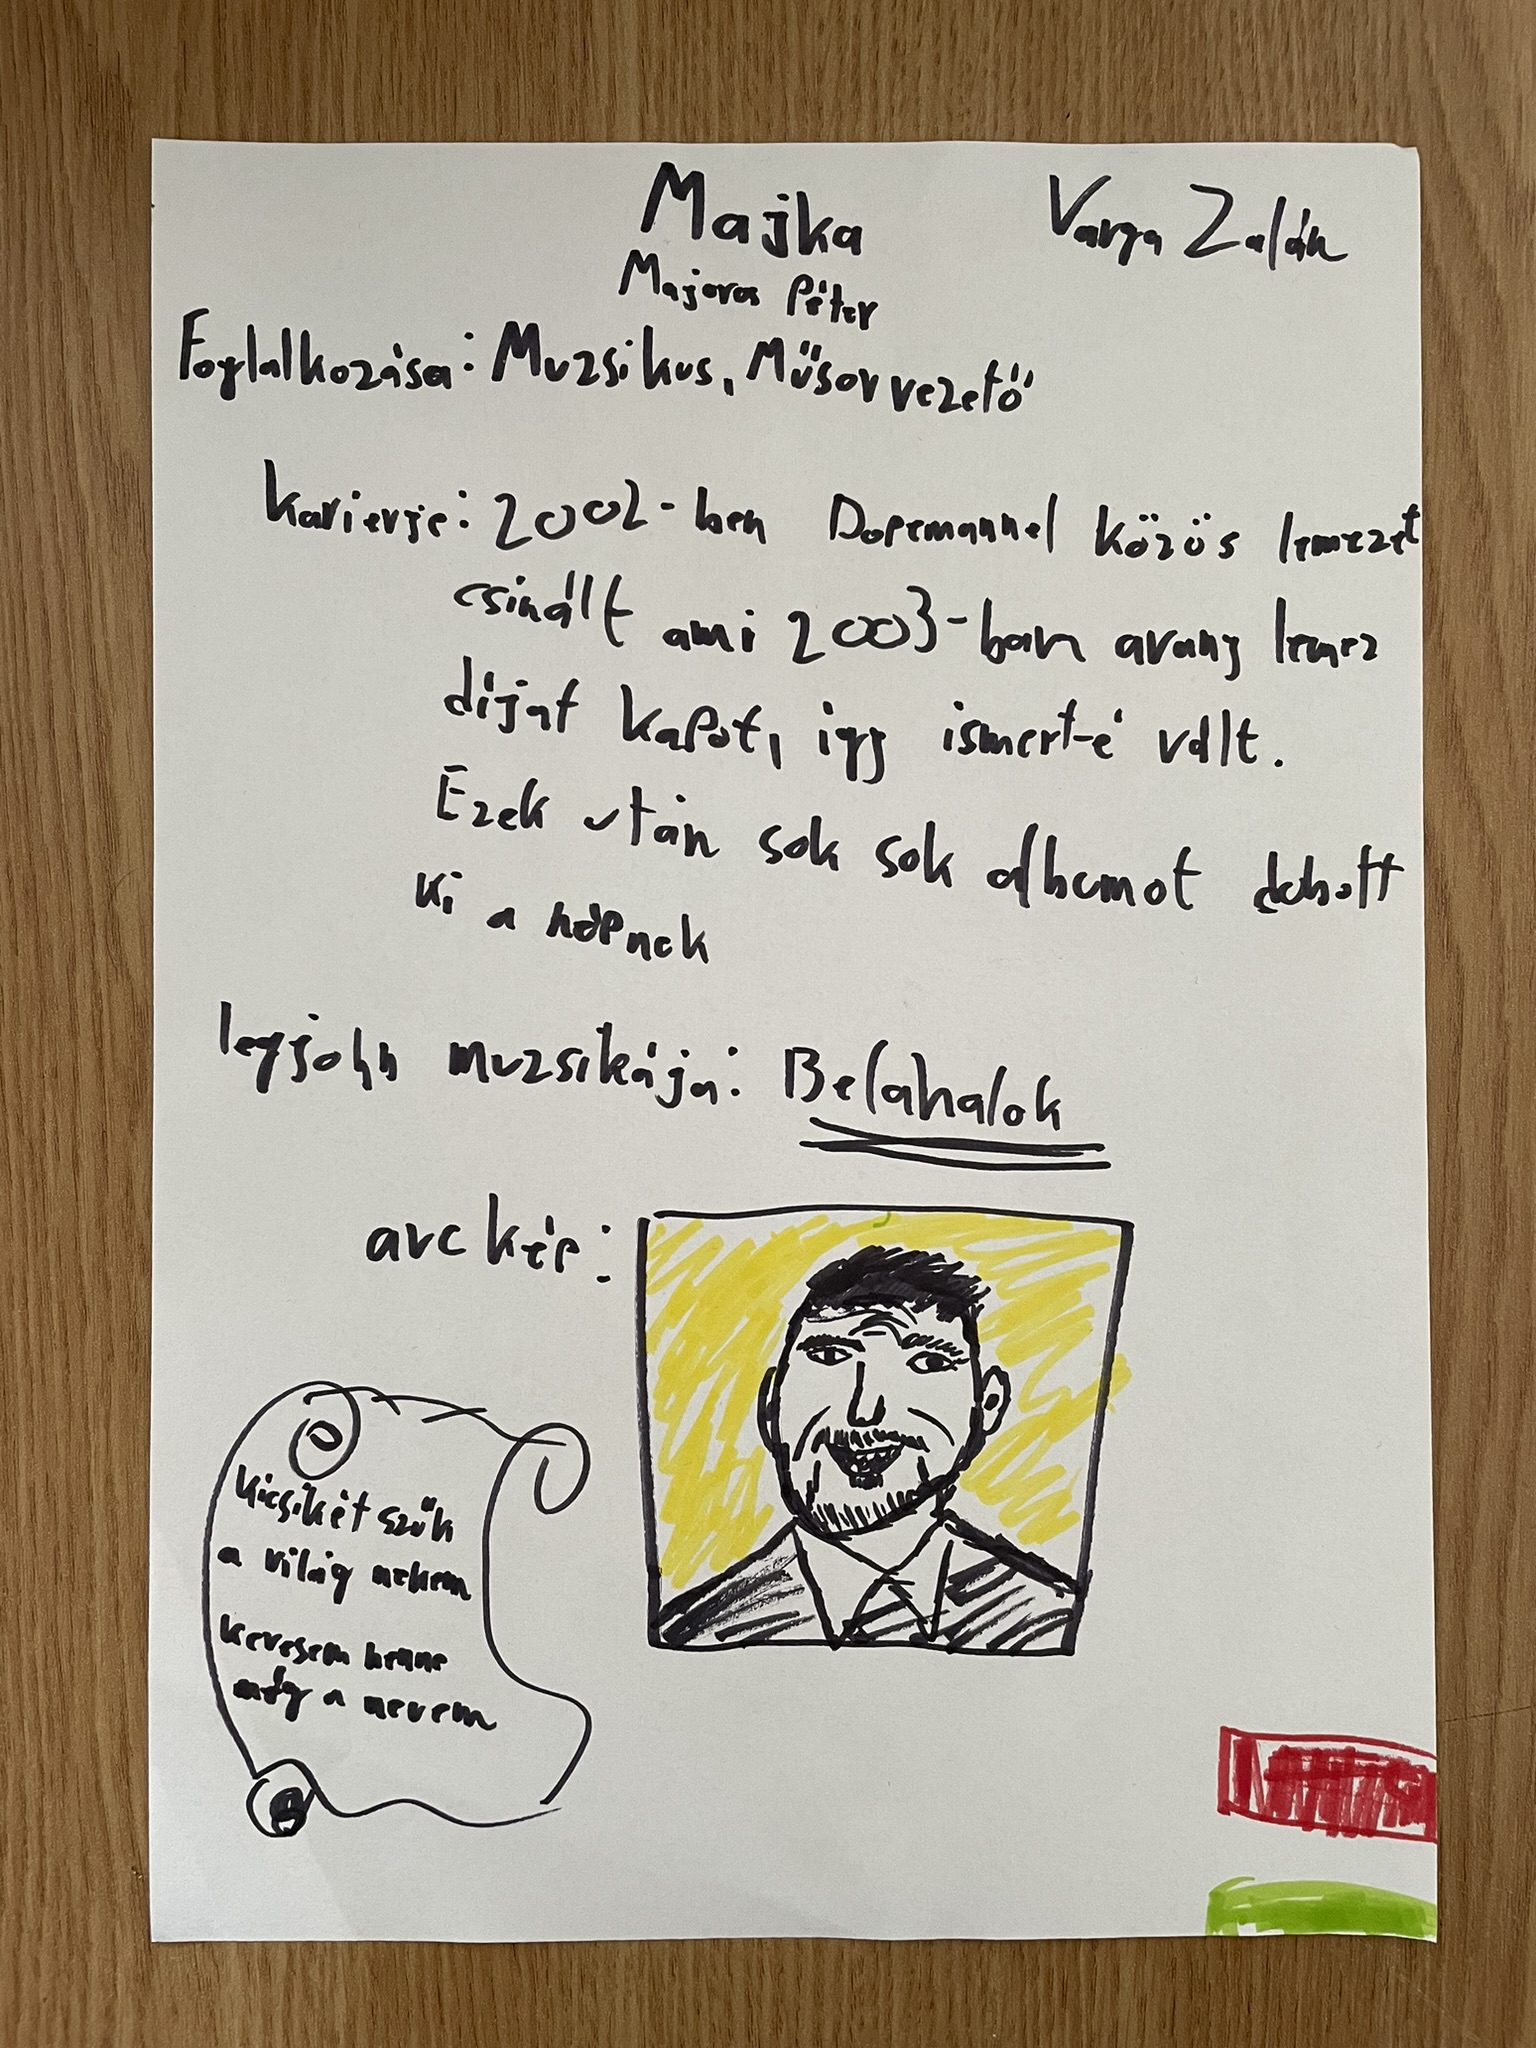 Majka
Varga Zalán
Majoros Péter
Foglalkozása: Muzsikus, Műsorvezető
karierje: 2002-ben Dopemannel közös lemezet
csinált ami 2003-ban arany lemez
díjat kapot, így ismert-é vált.
Ezek után sok sok albumot dobott
ki a népnek
legjobb muzsikája: Belahalok
arc kép:
kicsikét szűk
a világ nekem
keresem benne
még a nevem